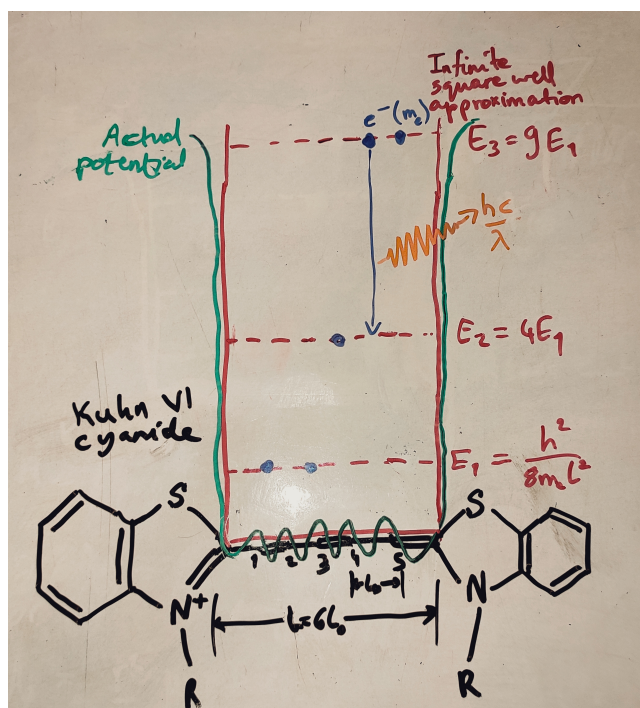 Infinite
square well
approximation
e⁻(mₑ)
Actual
potential
E₃ = 9E₁
hc
λ
E₂ = 4E₁
Kuhn VI
cyanide
E₁ = h²
8mₑL²
S
S
1 2 3 4 5
L₀
N⁺
N
L=6L₀
R
R